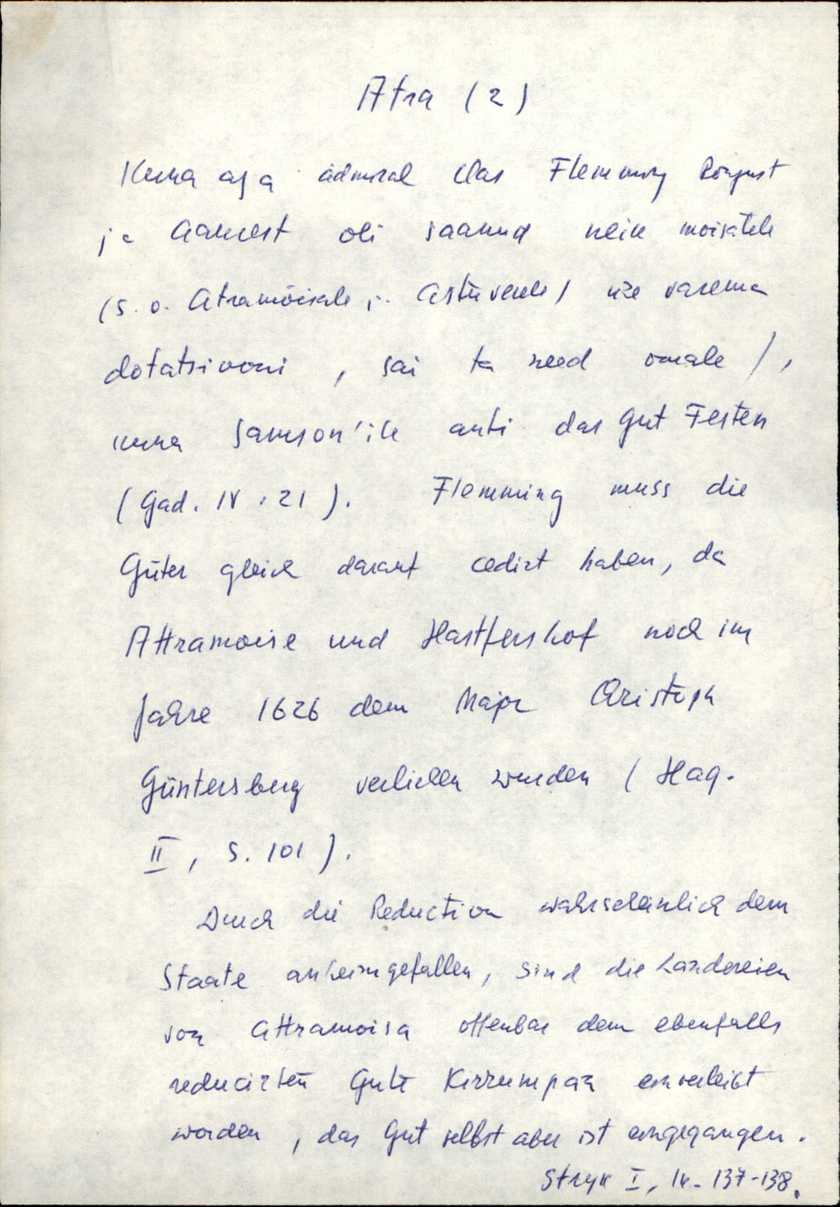 Atra (2)
Kuna aga admiral Clas Flemming Rõugest
ja Aamest oli saanud neile moisatele
(s. o. Atramõisale ja Astuverele) üze varema
dotatsiooni, sai ta need omale),
kuna Samson'ile anti das Gut Festen
(Gad. IV. 21). Flemming muss die
Güter gleich darauf cedirt haben, da
Attramoise und Hastfershof noch im
Jahre 1626 dem Major Christoph
Güntersberg verliehen wurden (Hag.
II, S. 101).
Durch die Reduction wahrscheinlich dem
Staate anheimgefallen, sind die Landereien
von Attramoisa offenbar dem ebenfalls
reducirten Gute Kirrumpäh einverleibt
worden, das Gut selbst aber ist eingegangen.
Stryk I, lk. 137-138.